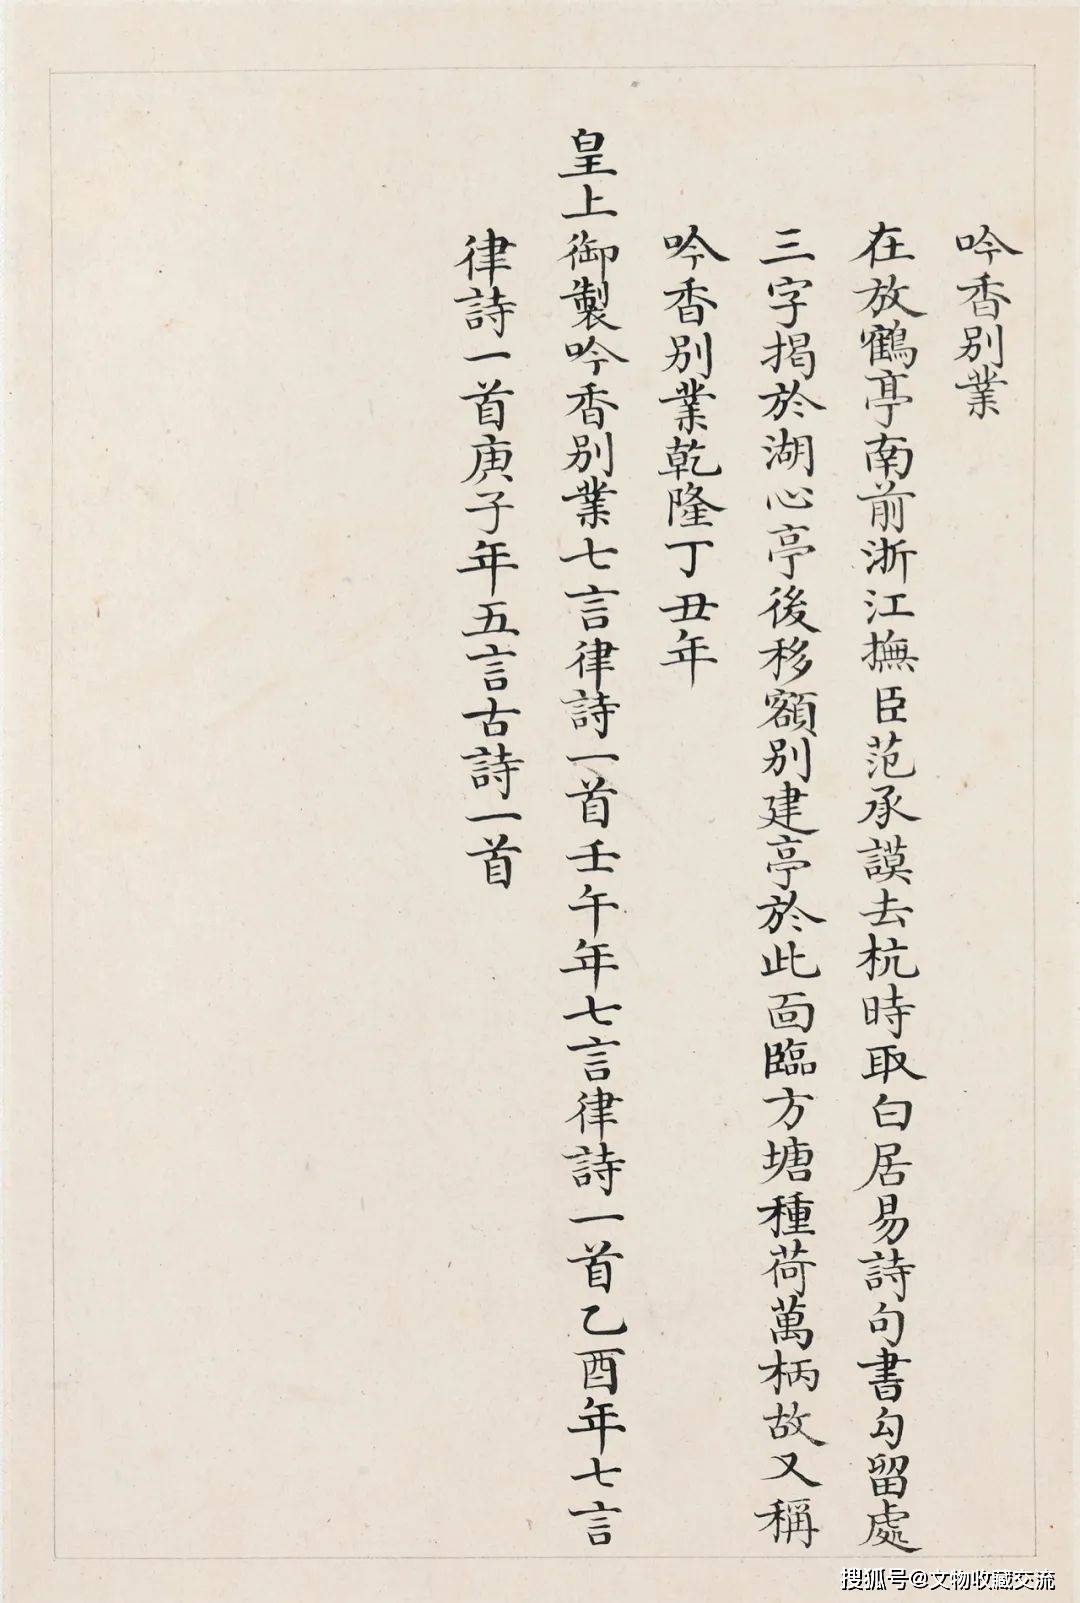 吟香别業
在放鶴亭南前浙江撫臣范承謨去杭時取白居易詩句書勾留處
三字揭於湖心亭後移額别建亭於此面臨方塘種荷萬柄故又稱
吟香别業乾隆丁丑年
皇上御製吟香别業七言律詩一首壬午年七言律詩一首乙酉年七言
律詩一首庚子年五言古詩一首
搜狐号@文物收藏交流